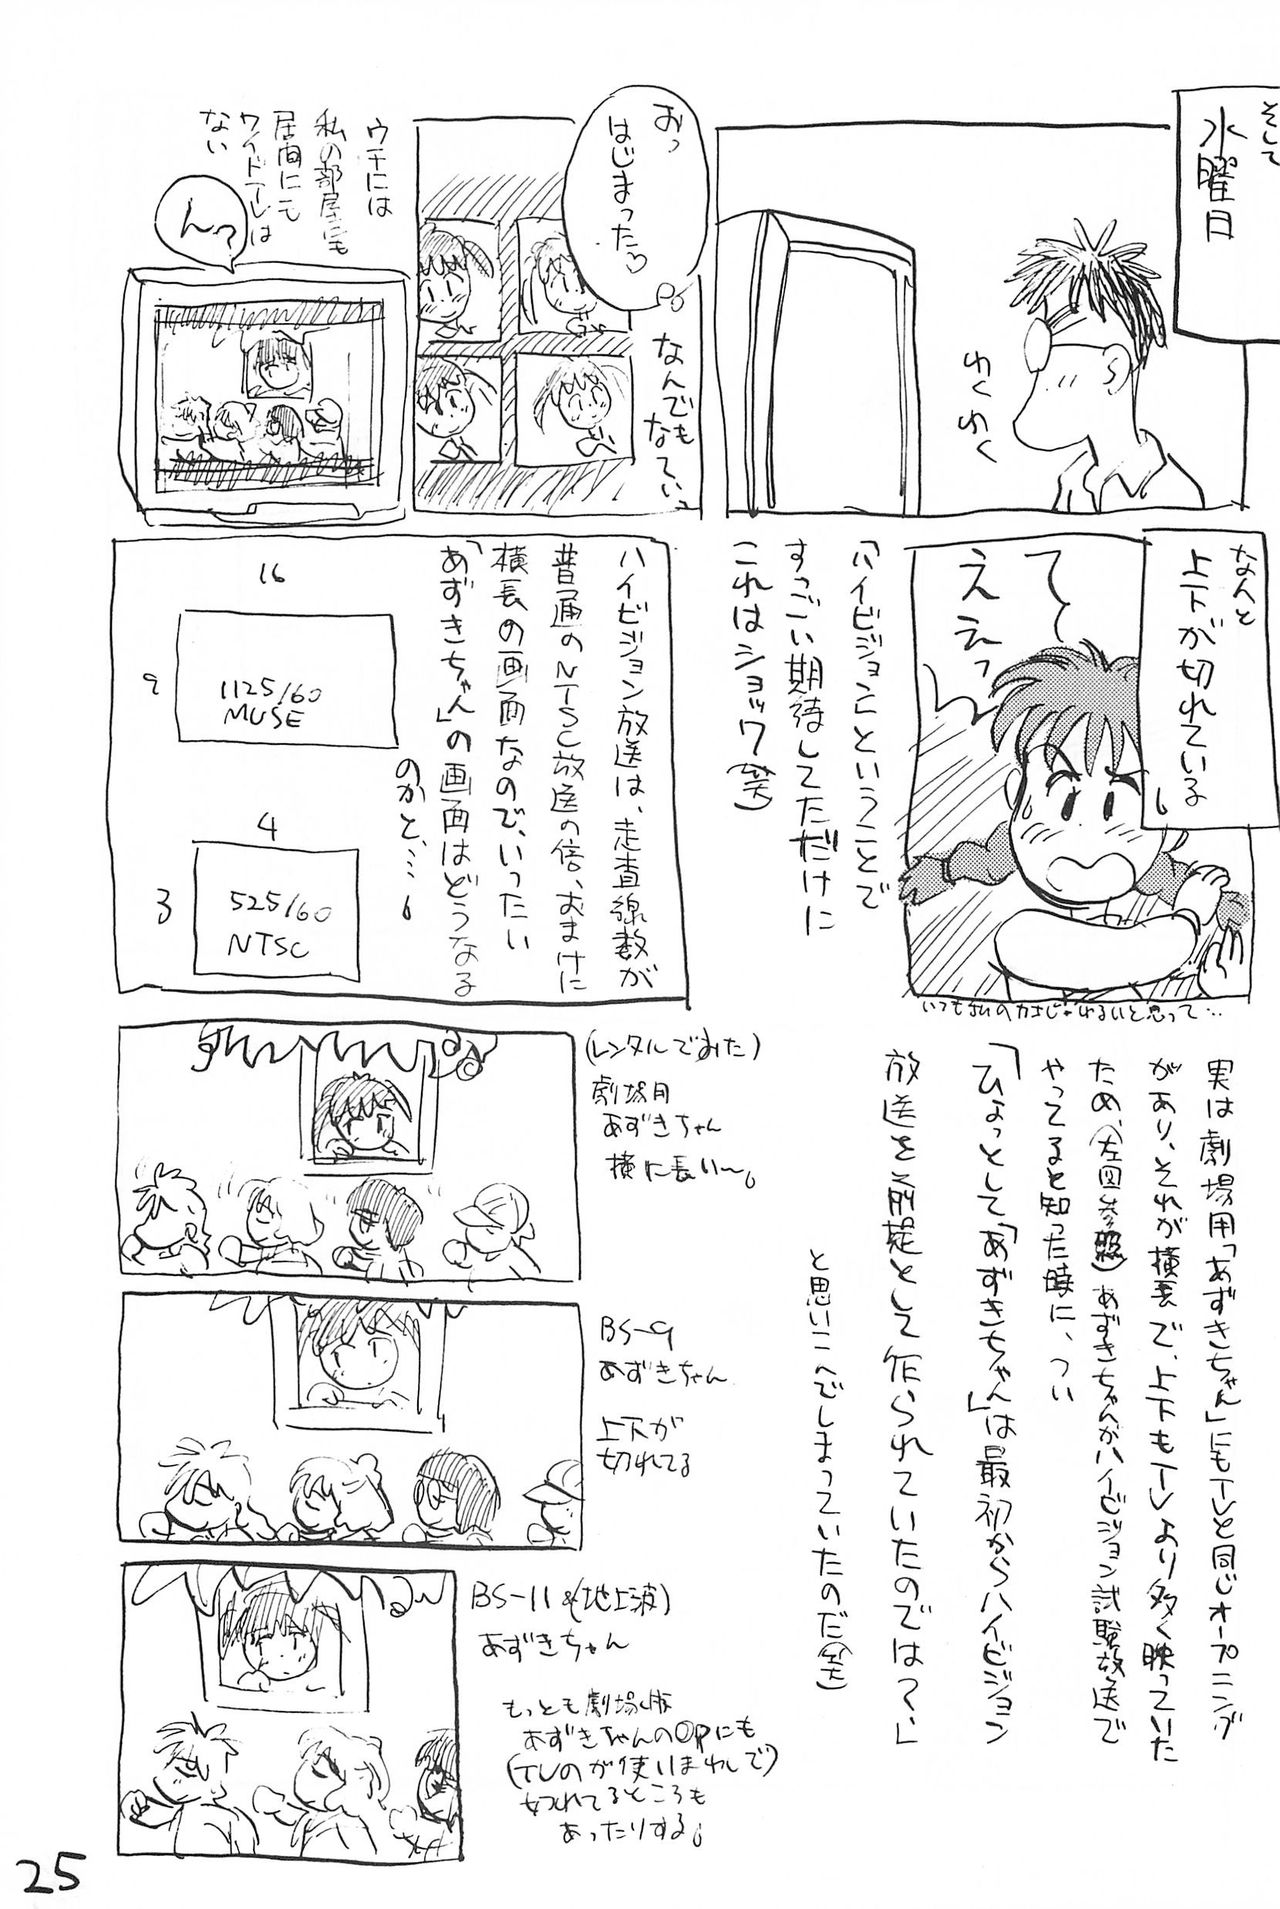 そして
水曜日
わくわく
おっ
はじまった♡
なんでも
なてぃっ
ウチには
私の部屋にも
居間にも
ワイドTVは
ない
ん?
なんと
上下が切れている
て〜
ええっ
いつも私の力じゃわるいと思って…
「ハイビジョン」ということで
すっごい期待してただけに
これはショック(笑)
ハイビジョン放送は、走査線数が
普通のNTSC放送の倍、おまけに
横長の画面なので、いったい
「あずきちゃん」の画面はどうなる
のかと…。
16
9
1125/60
MUSE
4
3
525/60
NTSC
実は劇場用「あずきちゃん」にもTVと同じオープニング
があり、それが横長で、上下もTVより多く映っていた
ため、(左図参照)あずきちゃんがハイビジョン試験放送で
やってると知った時に、つい
「ひょっとして「あずきちゃん」は最初からハイビジョン
放送を前提として作られていたのでは?」
と思いこんでしまっていたのだ(笑)
(レンタルでみた)
劇場用
あずきちゃん
横に長い〜。
BS-9
あずきちゃん
上下が
切れてる
BS-11&(地上波)
あずきちゃん
もっとも劇場版
あずきちゃんのOPにも
(TVのが使いまわしで)
切れてるところも
あったりする。
25